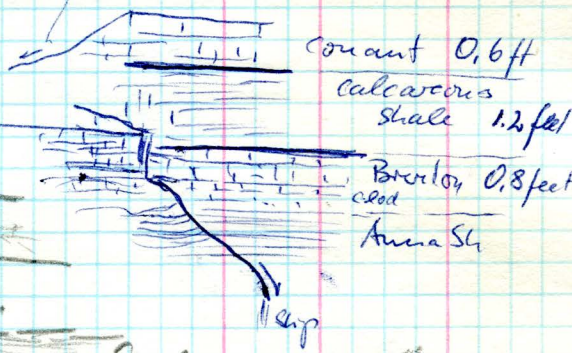 Conant 0,6 ft
calcareous
shale 1.2 feet
Brereton 0,8 feet
clod
Anna Sh
slip